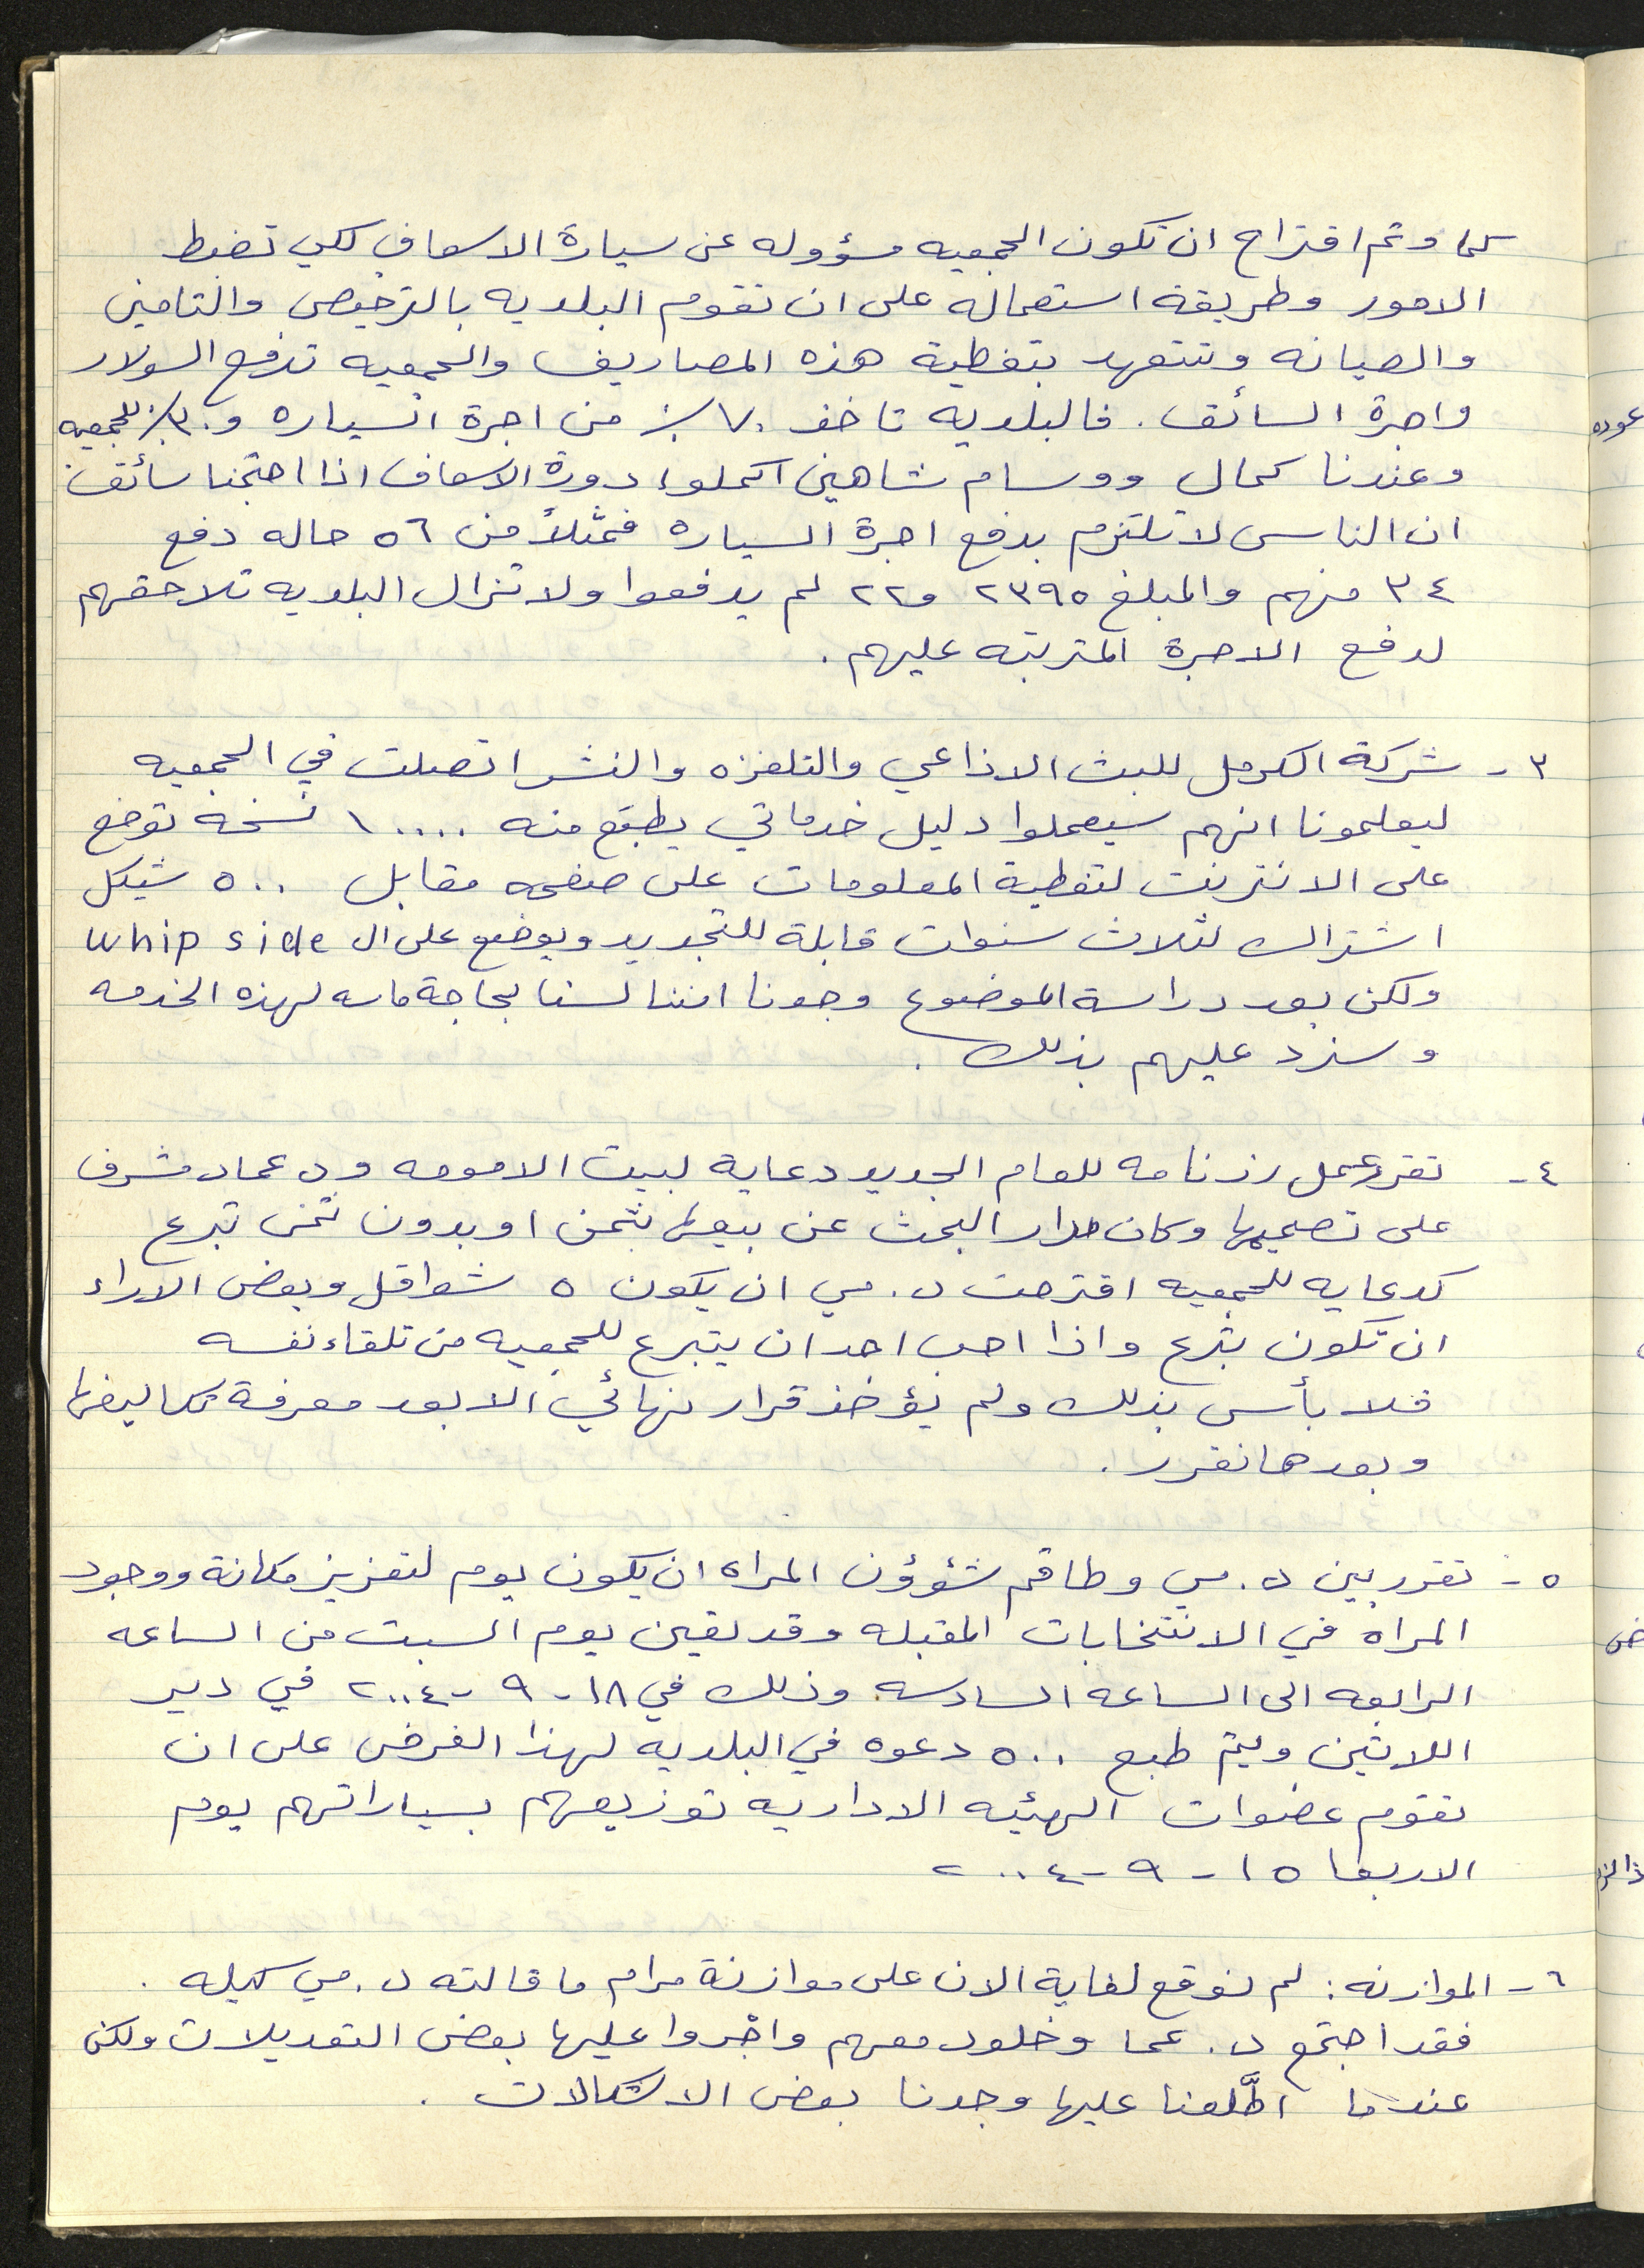 كما وتم اقتراح ان تكون الجمعيه مسؤوله عن سيارة الاسعاف لكي تضبط
الامور وطريقة استعماله على ان تقوم البلديه بالترخيص والتامين
والصيانه وتتعهد بتغطية هذه المصاريف والجمعيه تدفع السولار
واجرة السائق. فالبلديه تاخذ ٧٠٪ من اجرة السياره و ٣٠٪ للجمعيه
وعندنا كمال ووسام شاهين اكملوا دورة الاسعاف اذا احتجنا سائق
ان الناس لا تلتزم بدفع اجرة السياره فمثلاً من ٥٦ حاله دفع
٣٤ منهم والمبلغ ٢٣٩٥ و٢٢ لم يدفعوا ولا تزال البلديه تلاحقهم
لدفع الاجرة المتربته عليهم.
٣- شركة الكرمل للبث الاذاعي والتلفزه والنشر اتصلت في الجمعيه
ليعلمونا انهم سيعملوا دليل خدماتي يطبع منه ١٠٠٠٠ نسخه توضع
على الانترنت لتغطية المعلومات على صفحه مقابل ٥٠٠ شيكل
اشتراك لثلاث سنوات قابلة للتجديد ويوضع على ال whip side
ولكن بعد دراسة الموضوع وجدنا اننا لسنا بحاجة ماسه لهذه الخدمه
وسنرد عليهم بذلك.
٤- تقرر عمل رزنامه للعام الجديد دعاية لبيت الامومه ود عماد مشرف
على تصميمها وكان مدار البحث عن بيعها بثمن او بدون ثمن تبرع
كدعايه للجمعيه اقترحت د. مي ان يكون ٥ شواقل وبعض الاراء
ان تكون تبرع واذا احب احد ان يتبرع للجمعيه من تلقاء نفسه
فلا بأس بذلك ولم يؤخذ قرار نهائي الا بعد معرفة تكاليفها
وبعدها نقرر.
٥- تقرر بين د. مي وطاقم شؤؤن المراه ان يكون يوم لتعزيز مكانة ووجود
المراه في الانتخابات المقبله وقد تعين يوم السبت من الساعه
الرابعه الى الساعه السادسه وذلك في ١٨-٩-٢٠٠٤ في دير
اللاتين ويتم طبع ٥٠٠ دعوه في البلديه لهذا الغرض على ان
تقوم عضوات الهيئه الاداريه توزيعهم بسياراتهم يوم
الاربعا ١٥-٩-٢٠٠٤
٦- الموازنه: لم نوقع لغاية الان على موازنة مرام ما قالته د. مي كيله.
فقد اجتمع د. عما وخلود معهم واجروا عليها بعض التعديلات ولكن
عندما اطّلعنا عليها وجدنا بعض الاشكالات.
عوده